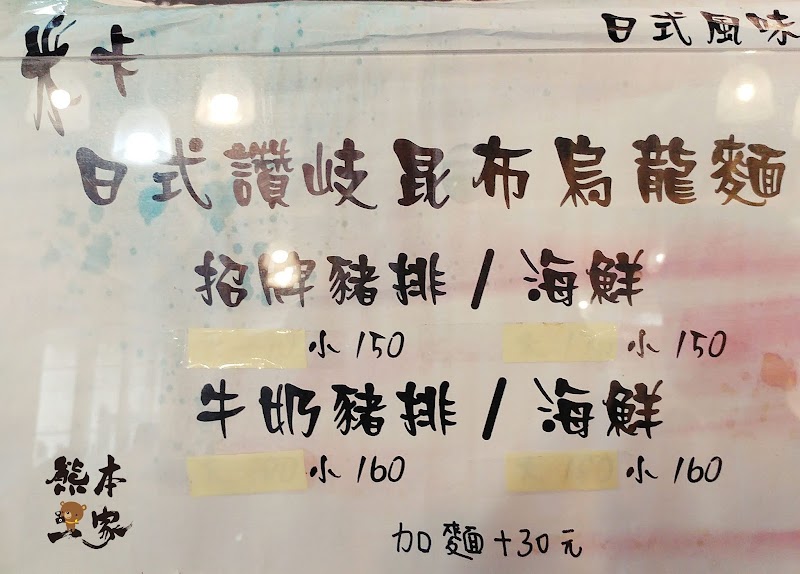 日式風味
日式讚岐昆布烏龍麵
招牌豬排/海鮮
小150 小150
牛奶豬排/海鮮
小160 小160
熊本
家
加麵+30元